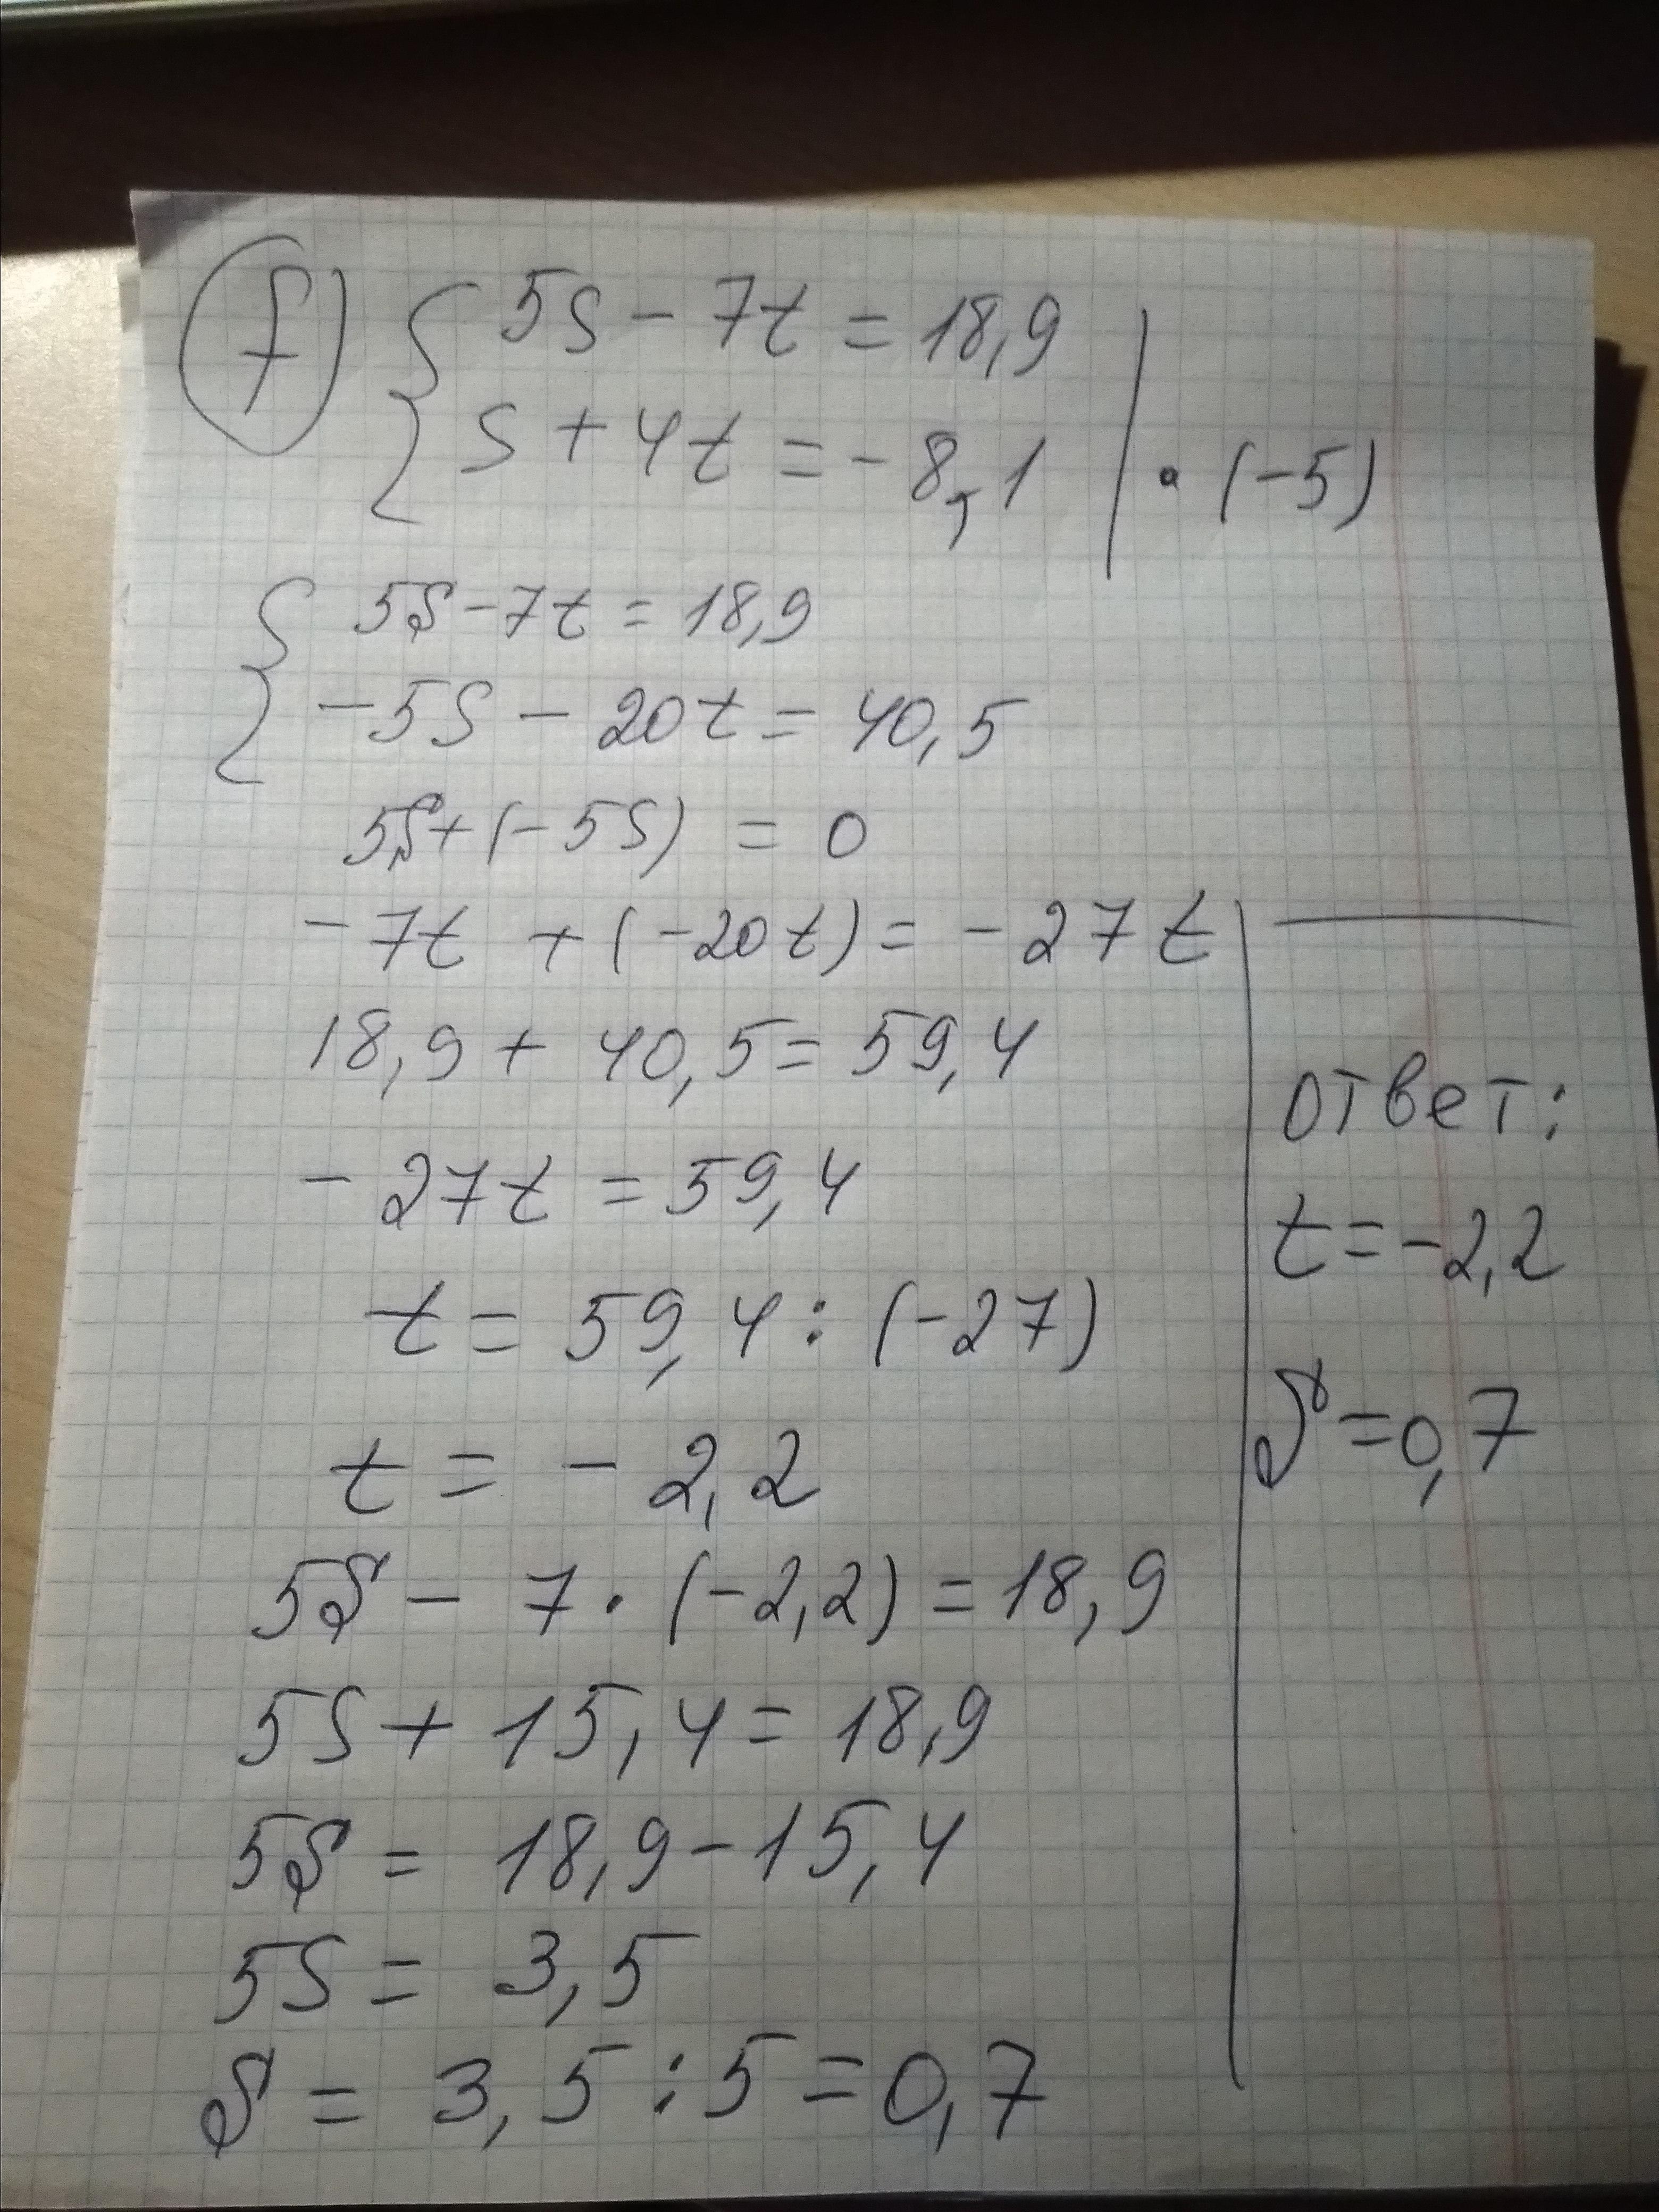 f) 5S - 7t = 18,9
S + 4t = -8,1 | · (-5)
5S - 7t = 18,9
-5S - 20t = 40,5
5S + (-5S) = 0
-7t + (-20t) = -27t
18,9 + 40,5 = 59,4
-27t = 59,4
t = 59,4 : (-27)
t = -2,2
5S - 7 · (-2,2) = 18,9
5S + 15,4 = 18,9
5S = 18,9 - 15,4
5S = 3,5
S = 3,5 : 5 = 0,7
ответ:
t = -2,2
S = 0,7